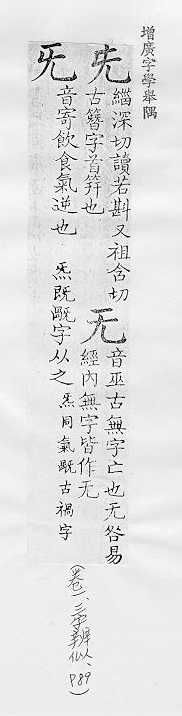 增廣字學舉隅
兂
緇深切讀若斟又祖含切
古簪字首筓也
无
音巫古無字亡也无咎易
經內無字皆作无
旡
音寄飲食氣逆也
炁既旤字从之
炁同氣旤古禍字
(卷一、三字辨似、P89)